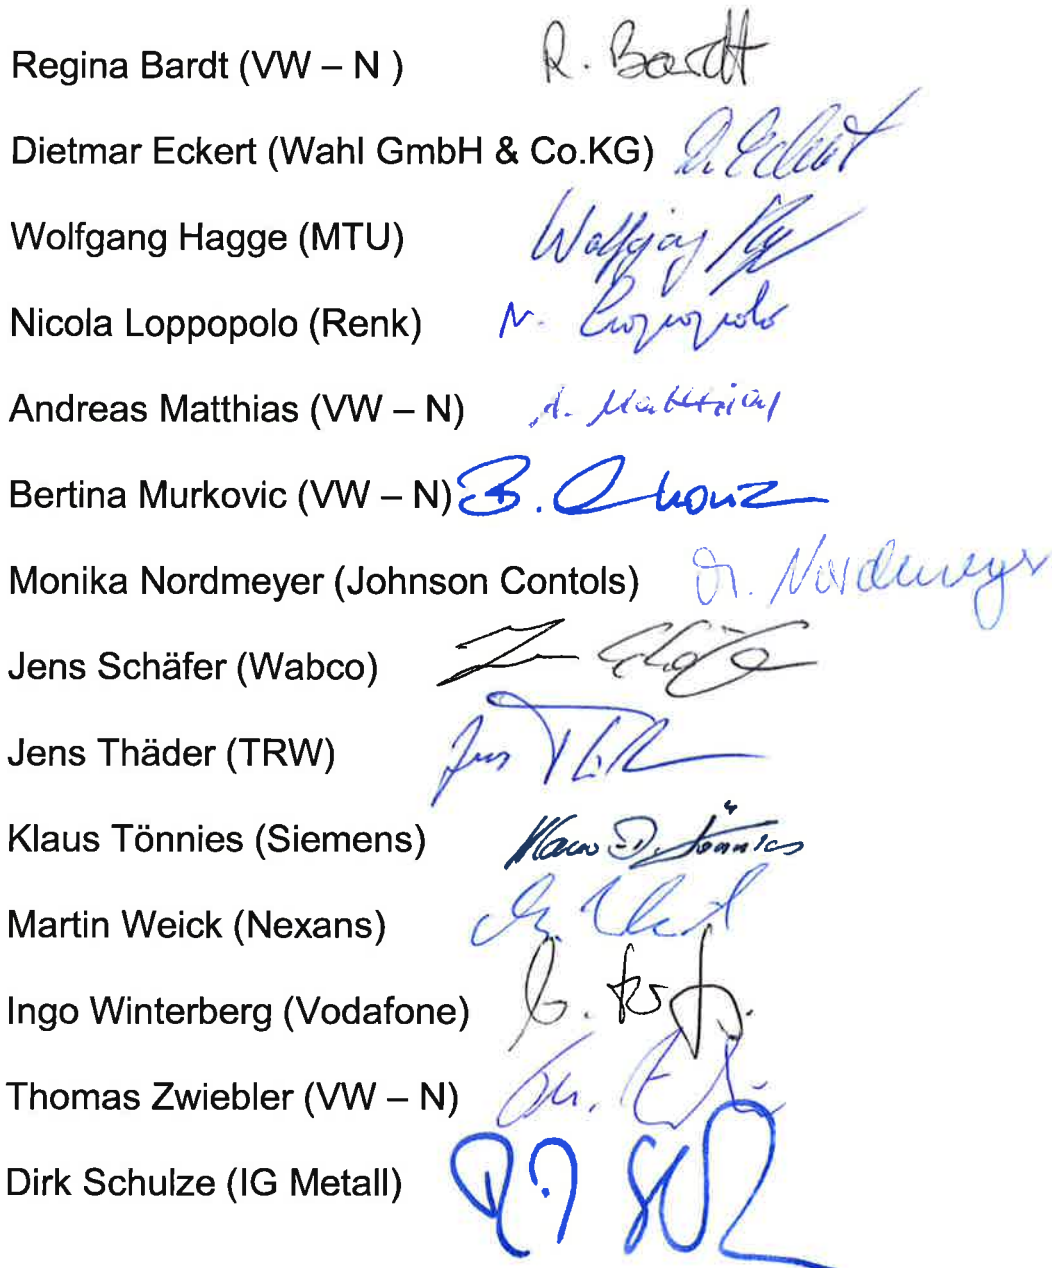 Regina Bardt (VW – N ) R. Bardt
Dietmar Eckert (Wahl GmbH & Co.KG) D. Eckert
Wolfgang Hagge (MTU) Wolfgang
Nicola Loppopolo (Renk) N. Loppopolo
Andreas Matthias (VW – N) A. Matthias
Bertina Murkovic (VW – N) B.
Monika Nordmeyer (Johnson Contols) M. Nordmeyer
Jens Schäfer (Wabco) Schäfer
Jens Thäder (TRW) Jens
Klaus Tönnies (Siemens) Klaus D. Tönnies
Martin Weick (Nexans)
Ingo Winterberg (Vodafone)
Thomas Zwiebler (VW – N) Th.
Dirk Schulze (IG Metall)